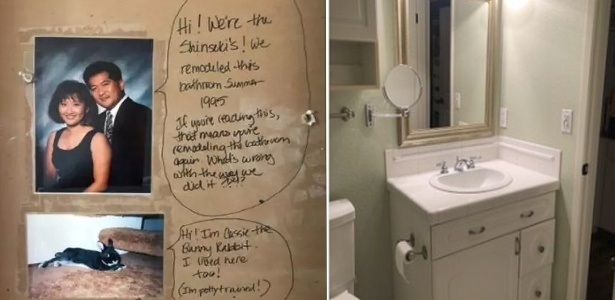 Hi! We're the
Shinseki's! We
remodeled this
bathroom Summer
1995
If you're reading this,
that means you're
remodeling the bathroom
again. What's wrong
with the way we
did it ?!?
Hi! I'm Cassie the
Bunny Rabbit.
I lived here
too!
(I'm potty trained!)